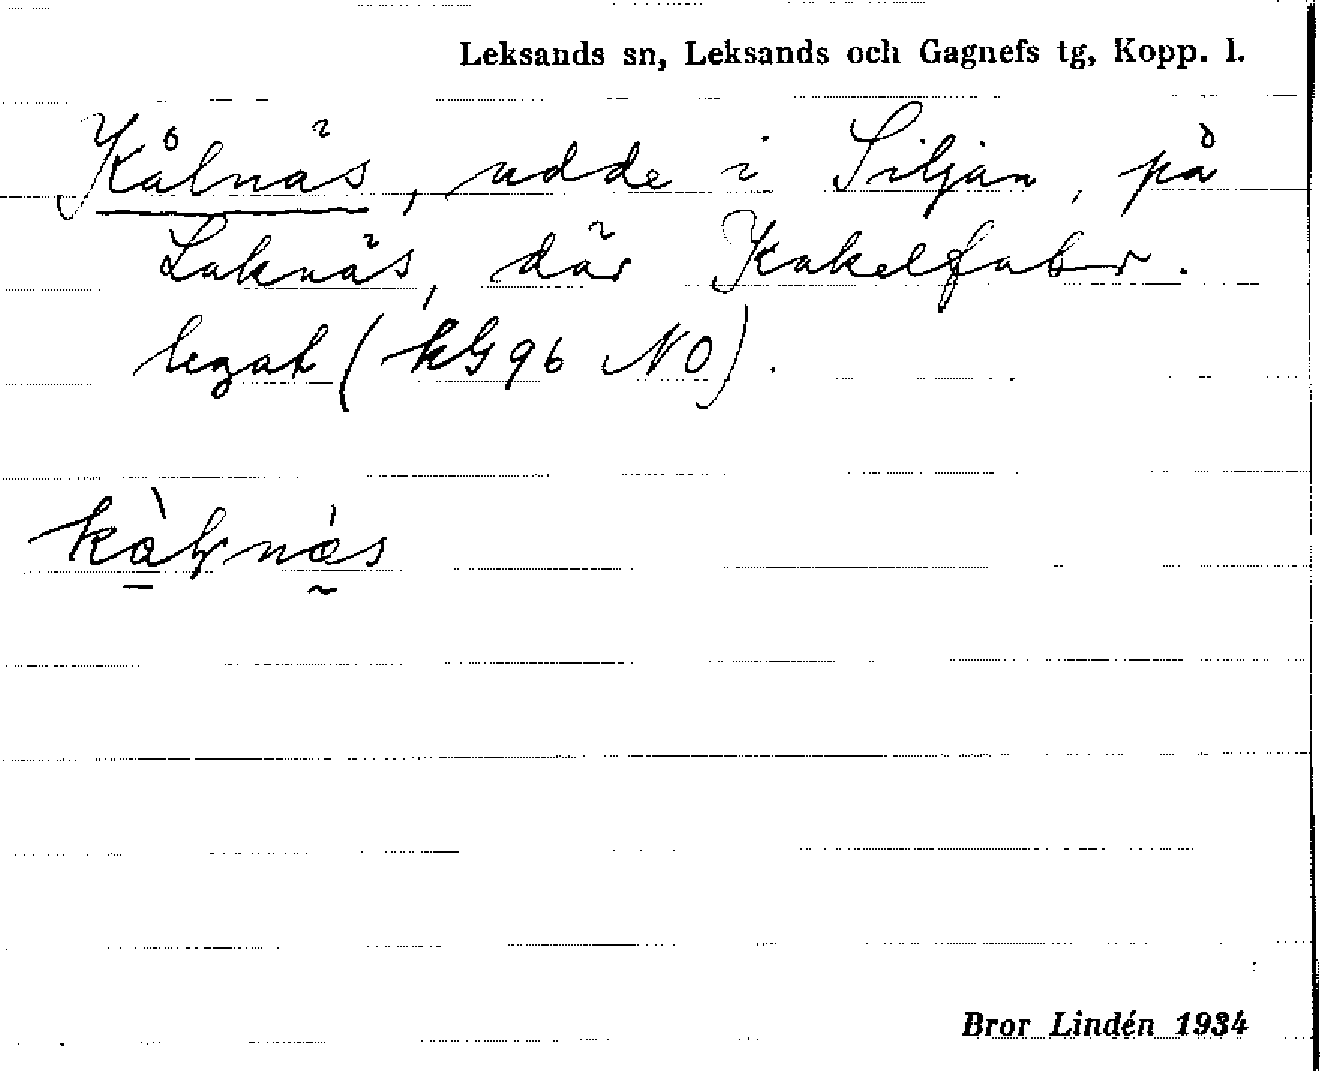 Leksands sn, Leksands och Gagnefs tg, Kopp. l.
Kålnäs, udde i Siljan, på
Laknäs, där Kakelfabr.
legat (kG 96 NO).
Bror Lindén 1934